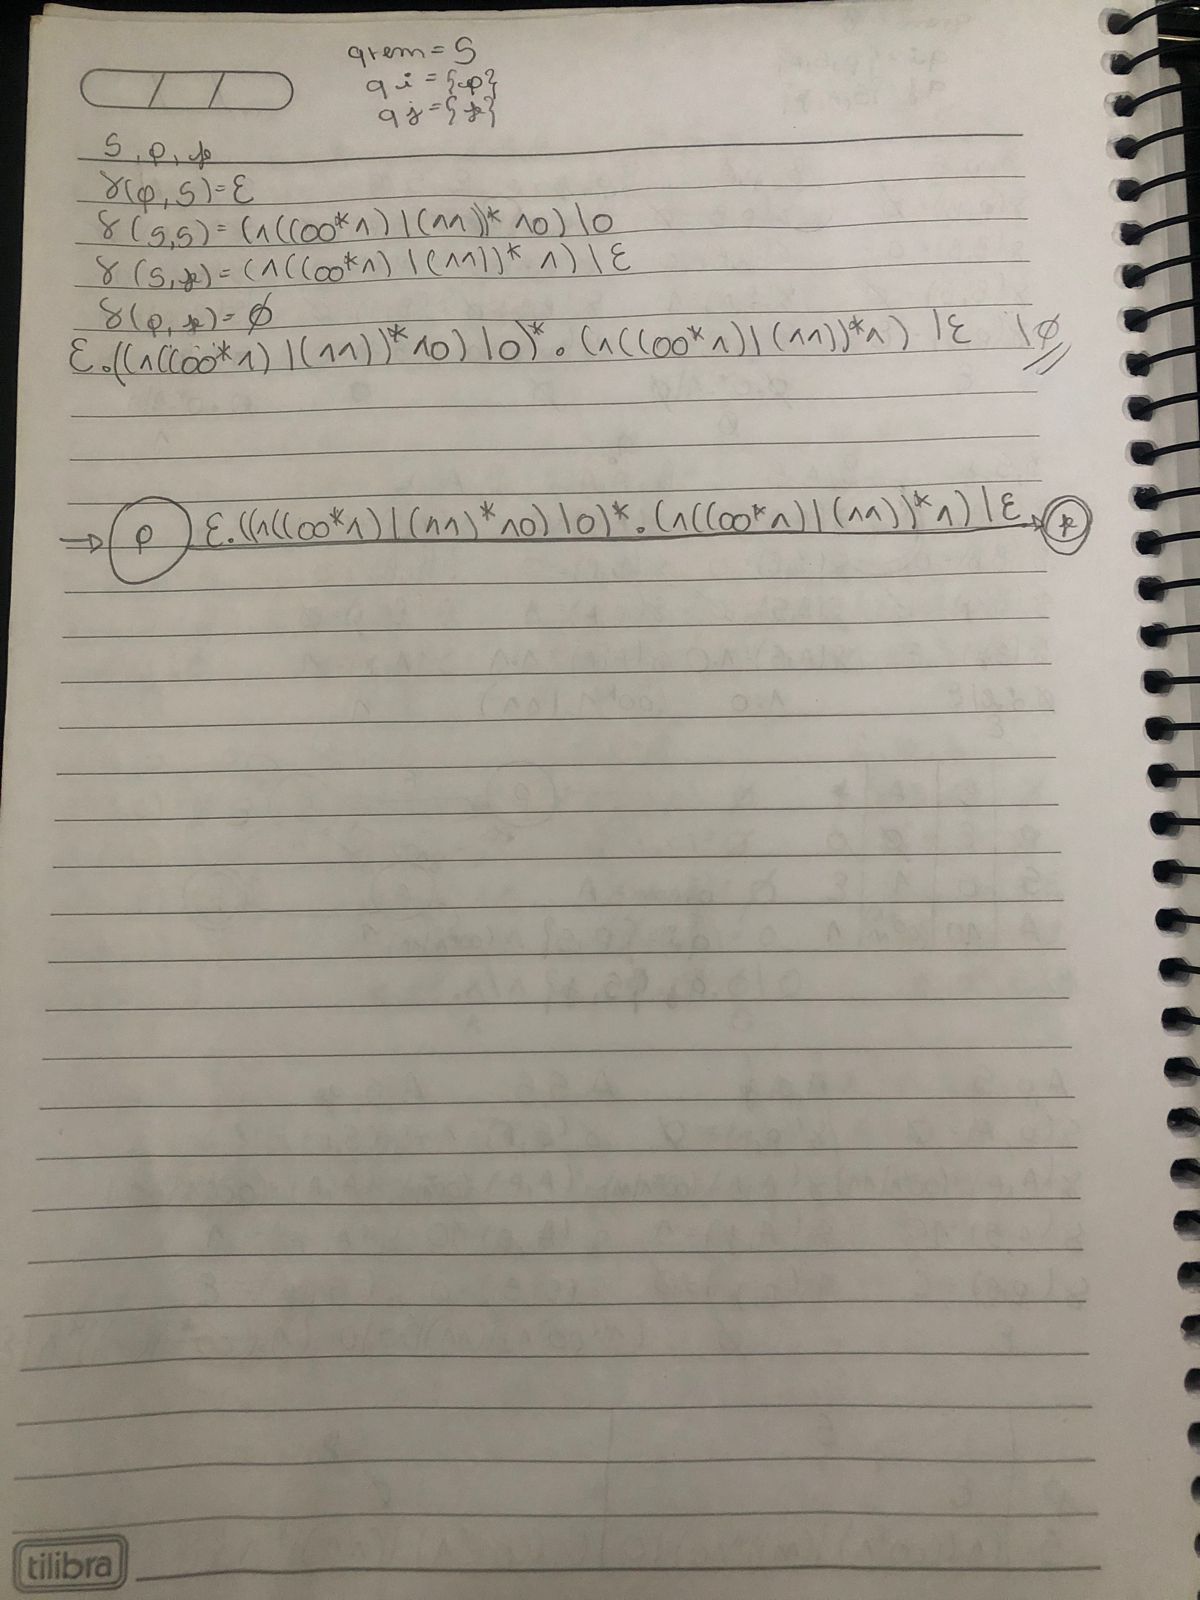 qrem = S
qi = {p}
qj = {f}
S, p, f
δ(p, S) = ε
δ(S,S) = (1((00*1) | (11))* 10) | 0
δ(S,f) = (1((00*1) | (11))* 1) | ε
δ(p, f) = ∅
ε.((1((00*1) | (11))* 10) | 0)* . (1((00*1) | (11))* 1) | ε | ∅
p ε.((1((00*1) | (11)* 10) | 0)* . (1((00*1) | (11))* 1) | ε f
tilibra